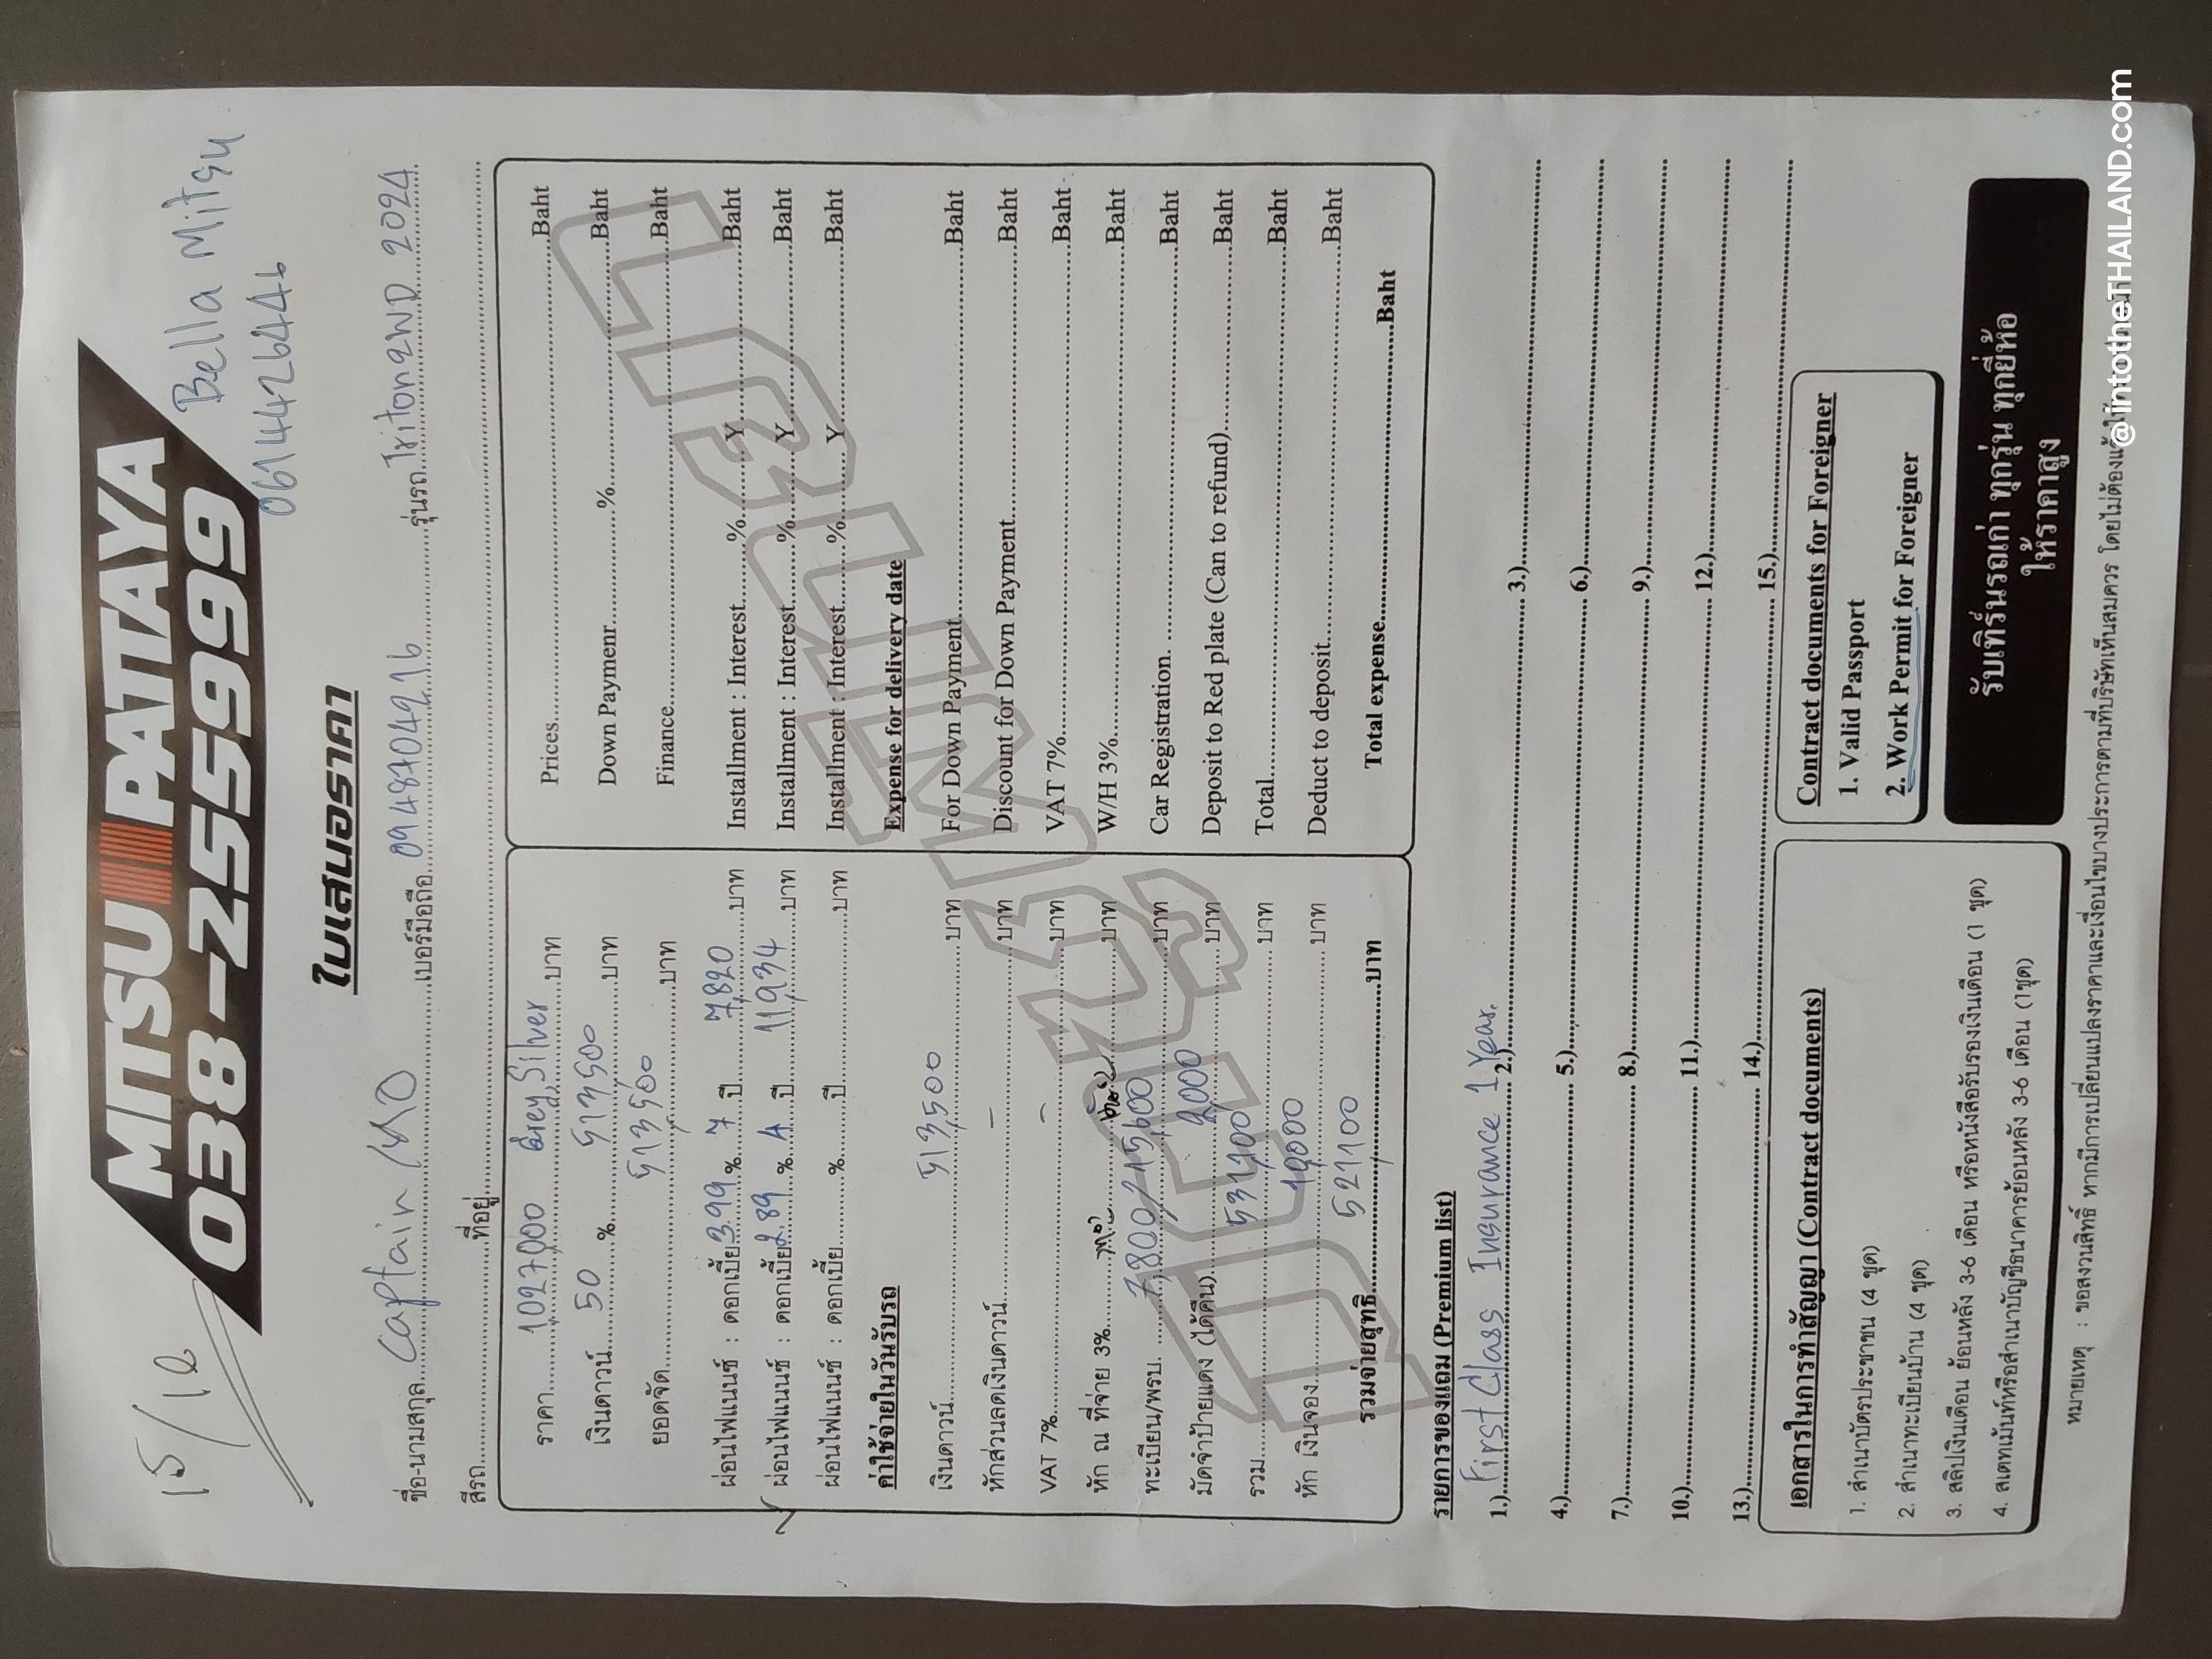 15/10
MITSU PATTAYA
038-255999
Bella Mitsu
0614426446
ใบเสนอราคา
ชื่อ-นามสกุล...Captain...เบอร์มือถือ...0948704216...รุ่นรถ...Triton 2WD 2024
สีรถ...ที่อยู่...
ราคา...1027,000 Grey, Silver...บาท
เงินดาวน์...50...%...513500...บาท
ยอดจัด...513,500...บาท
ผ่อนไฟแนนซ์ : ดอกเบี้ย 3.99 % 7 ปี 7,820 บาท
ผ่อนไฟแนนซ์ : ดอกเบี้ย 2.89 % 4 ปี 11,934 บาท
ผ่อนไฟแนนซ์ : ดอกเบี้ย...%...ปี...บาท
ค่าใช้จ่ายในวันรับรถ
เงินดาวน์...513,500...บาท
หักส่วนลดเงินดาวน์...–...บาท
VAT 7%...–...บาท
หัก ณ ที่จ่าย 3%...บาท
ทะเบียน/พรบ. ...7,800/15,600...บาท
มัดจำป้ายแดง (ได้คืน)...2,000...บาท
รวม...531,100...บาท
หัก เงินจอง...10,000...บาท
รวมจ่ายสุทธิ...521,100...บาท
Prices...Baht
Down Paymenr...%...Baht
Finance...Baht
Installment : Interest...%...Y...Baht
Installment : Interest...%...Y...Baht
Installment : Interest...%...Y...Baht
Expense for delivery date
For Down Payment...Baht
Discount for Down Payment...Baht
VAT 7%...Baht
W/H 3%...Baht
Car Registration. ...Baht
Deposit to Red plate (Can to refund)...Baht
Total...Baht
Deduct to deposit...Baht
Total expense...Baht
รายการของแถม (Premium list)
1.)...First Class Insurance 1 Year. 2.)...3.)...
4.)...5.)...6.)...
7.)...8.)...9.)...
10.)...11.)...12.)...
13.)...14.)...15.)...
เอกสารในการทำสัญญา (Contract documents)
1. สำเนาบัตรประชาชน (4 ชุด)
2. สำเนาทะเบียนบ้าน (4 ชุด)
3. สลิปเงินเดือน ย้อนหลัง 3-6 เดือน หรือหนังสือรับรองเงินเดือน (1 ชุด)
4. สเตทเม้นท์หรือสำเนาบัญชีธนาคารย้อนหลัง 3-6 เดือน (1ชุด)
Contract documents for Foreigner
1. Valid Passport
2. Work Permit for Foreigner
รับเทิร์นรถเก่า ทุกรุ่น ทุกยี่ห้อ
ให้ราคาสูง
หมายเหตุ : ขอสงวนสิทธิ์ หากมีการเปลี่ยนแปลงราคาและเงื่อนไขบางประการตามที่บริษัทเห็นสมควร โดยไม่ต้อง
@intotheTHAILAND.com